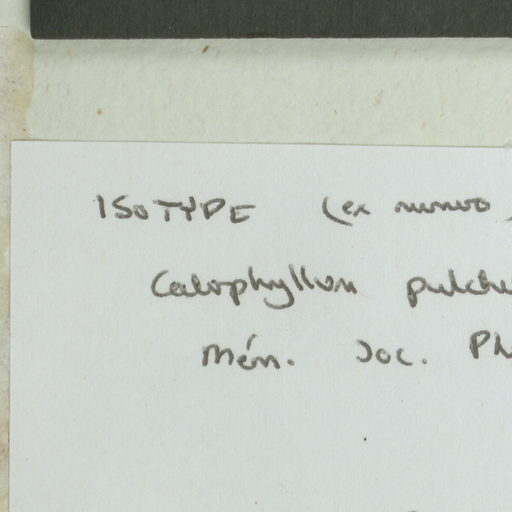 ISOTYPE (ex numero
Calophyllum pulche
Mém. Soc. Ph